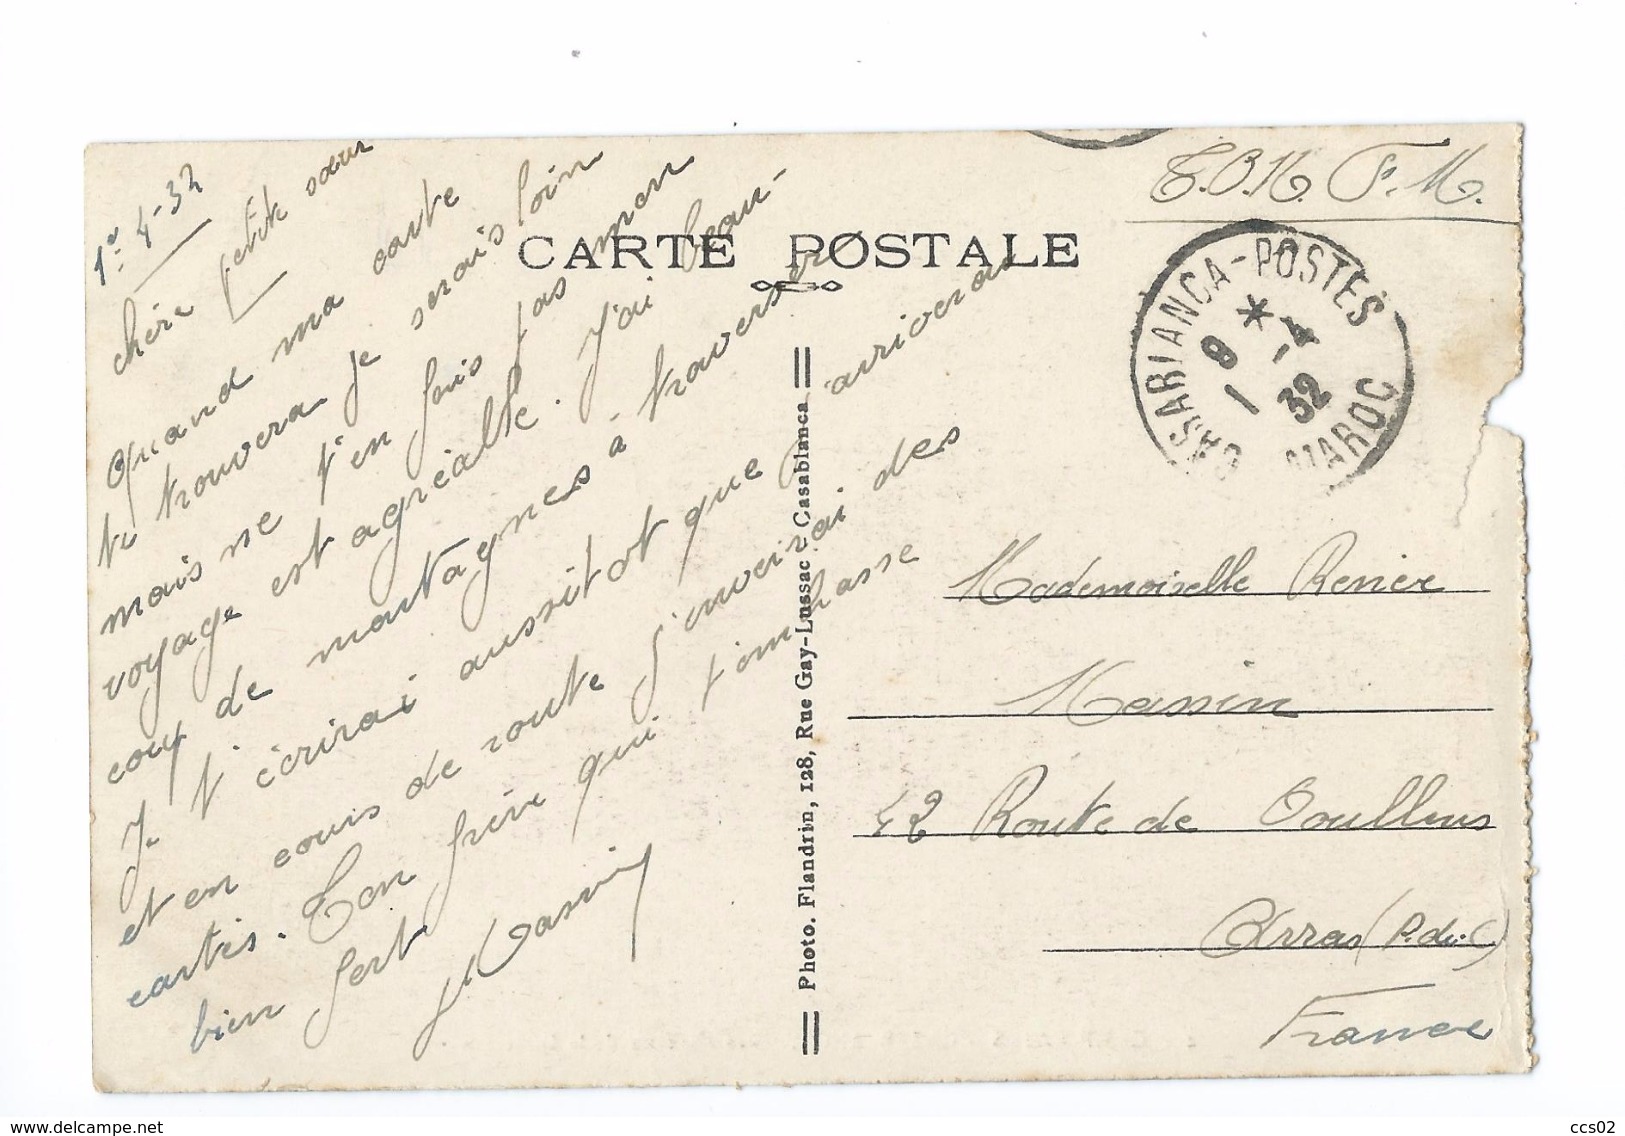 1er 4-32
chère petite sœur
Quand ma carte
te trouvera je serais loin
mais ne t'en fais pas mon
voyage est agréable. J'ai beau-
coup de montagnes à traverser
Je t'écrirai aussitot que arriverai
et en cours de route J'enverrai des
cartes. Ton frère qui t'embrasse
bien fort
Massin
CARTE POSTALE
Photo. Flandrin, 128, Rue Gay-Lussac - Casablanca
T.O.M. F.M.
CASABLANCA-POSTES
8 * -4
1 32
MAROC
Mademoiselle Renée
Massin
42 Route de Doullens
Arras (P.de.C)
France
www.delcampe.net
ccs02